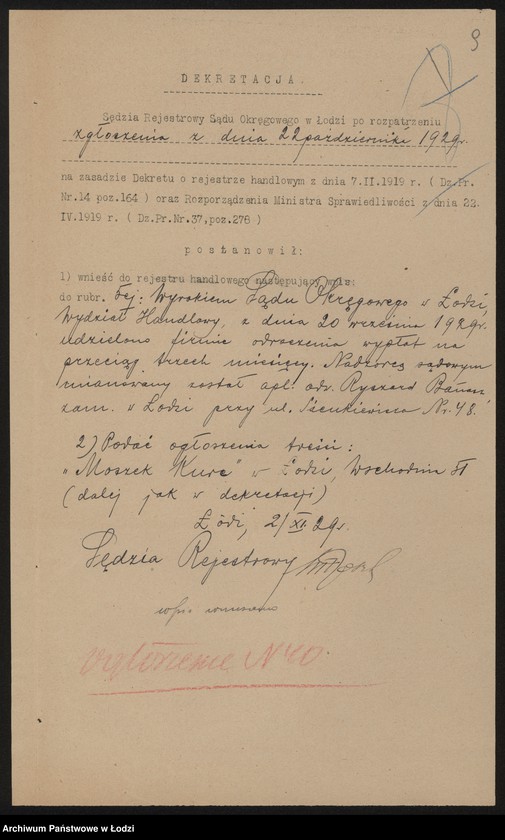 9
DEKRETACJA.
Sędzia Rejestrowy Sądu Okręgowego w Łodzi po rozpatrzeniu
zgłoszenia z dnia 22 października 1929r.
na zasadzie Dekretu o rejestrze handlowym z dnia 7.II.1919 r. ( Dz.Pr.
Nr.14 poz.164 ) oraz Rozporządzenia Ministra Sprawiedliwości z dnia 22.
IV.1919 r. ( Dz.Pr.Nr.37,poz.278 )
postanowił:
1) wnieść do rejestru handlowego następujący wpis:
do rubr. Wyrokiem Sądu Okręgowego w Łodzi,
Wydział Handlowy, z dnia 20 września 1929r.
udzielono firmie odroczenia wypłat na
przeciąg trzech miesięcy. Nadzorcą sądowym
mianowany został apl. adw. Ryszard
zam. w Łodzi przy ul. Sienkiewicza Nr. 48.
2) Podać ogłoszenia treści:
"Moszek Kurc" w Łodzi, Wschodnia 51
(dalej jak w dekretacji)
Łódź, 2/XI.29r.
Sędzia Rejestrowy
wpis wniesiono
ogłoszenie N 40.
Archiwum Państwowe w Łodzi